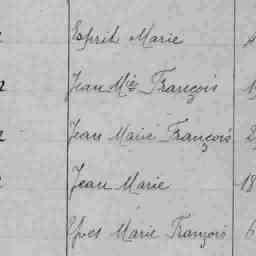 Esprit Marie
Jean Mie François
Jean Marie François
Jean Marie 18
Yves Marie François 6